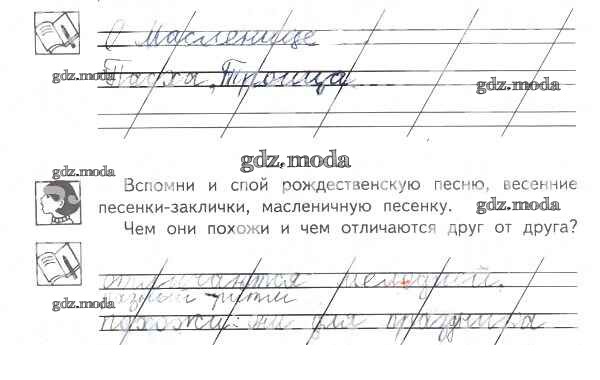 О Масленице
gdz.moda
Пасха, Троица
gdz.moda
gdz.moda
gdz.moda
Вспомни и спой рождественскую песню, весенние
песенки-заклички, масленичную песенку.
gdz.moda
Чем они похожи и чем отличаются друг от друга?
отличаются мелодией,
разный ритм
gdz.moda
похожи: они для праздника